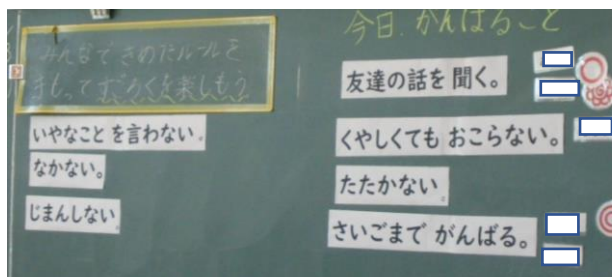 みんなできめたルールを
まもってすごろくを楽しもう
いやなことを言わない。
なかない。
じまんしない。
今日、がんばること
友達の話を聞く。
くやしくても おこらない。
たたかない。
さいごまで がんばる。